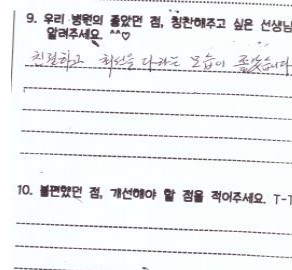 9. 우리 병원의 좋았던 점, 칭찬해주고 싶은 선생님
알려주세요. ^^♡
친절하고 최선을 다하는 모습이 좋았습니다
10. 불편했던 점, 개선해야 할 점을 적어주세요. T-T